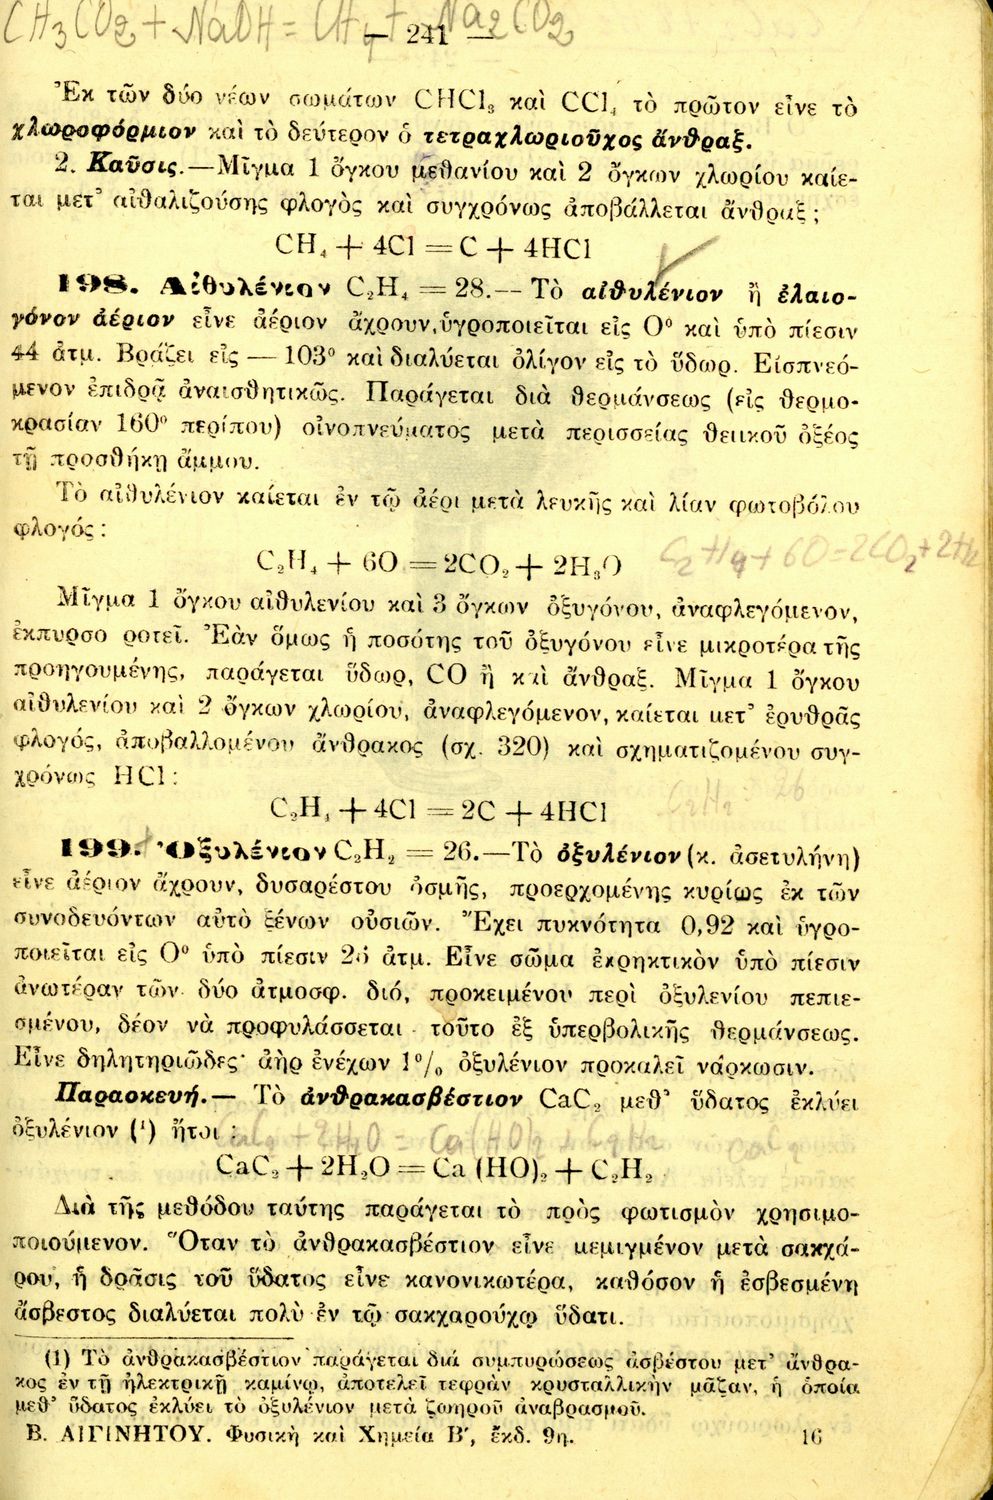 CH3CO2 + NaOH = CH4 + Na2CO2
— 241 —
Ἐκ τῶν δύο νέων σωμάτων CHCl₃ καὶ CCl₄ τὸ πρῶτον εἶνε τὸ
χλωροφόρμιον καὶ τὸ δεύτερον ὁ τετραχλωριοῦχος ἄνθραξ.
2. Καῦσις.—Μῖγμα 1 ὄγκου μεθανίου καὶ 2 ὄγκων χλωρίου καίε-
ται μετ' αἰθαλιζούσης φλογὸς καὶ συγχρόνως ἀποβάλλεται ἄνθραξ ;
CH₄ + 4Cl = C + 4HCl
198. Αἰθυλένιον C₂H₄ = 28.— Τὸ αἰθυλένιον ἢ ἐλαιο-
γόνον ἀέριον εἶνε ἀέριον ἄχρουν, ὑγροποιεῖται εἰς 0⁰ καὶ ὑπὸ πίεσιν
44 ἀτμ. Βράζει εἰς — 103⁰ καὶ διαλύεται ὀλίγον εἰς τὸ ὕδωρ. Εἰσπνεό-
μενον ἐπιδρᾷ ἀναισθητικῶς. Παράγεται διὰ θερμάνσεως (εἰς θερμο-
κρασίαν 160⁰ περίπου) οἰνοπνεύματος μετὰ περισσείας θειικοῦ ὀξέος
τῇ προσθήκῃ ἄμμου.
Τὸ αἰθυλένιον καίεται ἐν τῷ ἀέρι μετὰ λευκῆς καὶ λίαν φωτοβόλου
φλογός :
C₂H₄ + 6O = 2CO₂ + 2H₃O
C2H4 + 6O = 2CO2 + 2H2
Μῖγμα 1 ὄγκου αἰθυλενίου καὶ 3 ὄγκων ὀξυγόνου, ἀναφλεγόμενον,
ἐκπυρσο ροτεῖ. Ἐὰν ὅμως ἡ ποσότης τοῦ ὀξυγόνου εἶνε μικροτέρα τῆς
προηγουμένης, παράγεται ὕδωρ, CO ἢ καὶ ἄνθραξ. Μῖγμα 1 ὄγκου
αἰθυλενίου καὶ 2 ὄγκων χλωρίου, ἀναφλεγόμενον, καίεται μετ' ἐρυθρᾶς
φλογός, ἀποβαλλομένου ἄνθρακος (σχ. 320) καὶ σχηματιζομένου συγ-
χρόνως HCl :
C2H2 : 26
C₂H₄ + 4Cl = 2C + 4HCl
199. Ὀξυλένιον C₂H₂ = 26.—Τὸ ὀξυλένιον (κ. ἀσετυλήνη)
εἶνε ἀέριον ἄχρουν, δυσαρέστου ὀσμῆς, προερχομένης κυρίως ἐκ τῶν
συνοδευόντων αὐτὸ ξένων οὐσιῶν. Ἔχει πυκνότητα 0,92 καὶ ὑγρο-
ποιεῖται εἰς 0⁰ ὑπὸ πίεσιν 26 ἀτμ. Εἶνε σῶμα ἐκρηκτικὸν ὑπὸ πίεσιν
ἀνωτέραν τῶν δύο ἀτμοσφ. διό, προκειμένου περὶ ὀξυλενίου πεπιε-
σμένου, δέον νὰ προφυλάσσεται τοῦτο ἐξ ὑπερβολικῆς θερμάνσεως.
Εἶνε δηλητηριῶδες· ἀὴρ ἐνέχων 1⁰/₀ ὀξυλένιον προκαλεῖ νάρκωσιν.
Παρασκευή.— Τὸ ἀνθρακασβέστιον CaC₂ μεθ' ὕδατος ἐκλύει
ὀξυλένιον (¹) ἤτοι :
CaC2 + 2H2O = Ca(HO)2 + C2H2 CaC2
CaC₂ + 2H₂O = Ca (HO)₂ + C₂H₂
Διὰ τῆς μεθόδου ταύτης παράγεται τὸ πρὸς φωτισμὸν χρησιμο-
ποιούμενον. Ὅταν τὸ ἀνθρακασβέστιον εἶνε μεμιγμένον μετὰ σακχά-
ρου, ἡ δρᾶσις τοῦ ὕδατος εἶνε κανονικωτέρα, καθόσον ἡ ἐσβεσμένη
ἄσβεστος διαλύεται πολὺ ἐν τῷ σακχαρούχῳ ὕδατι.
(1) Τὸ ἀνθρακασβέστιον παράγεται διὰ συμπυρώσεως ἀσβέστου μετ' ἄνθρα-
κος ἐν τῇ ἠλεκτρικῇ καμίνῳ, ἀποτελεῖ τεφρὰν κρυσταλλικὴν μᾶζαν, ἡ ὁποία
μεθ' ὕδατος ἐκλύει τὸ ὀξυλένιον μετὰ ζωηροῦ ἀναβρασμοῦ.
Β. ΑΙΓΙΝΗΤΟΥ. Φυσικὴ καὶ Χημεία Β', ἔκδ. 9η. 16